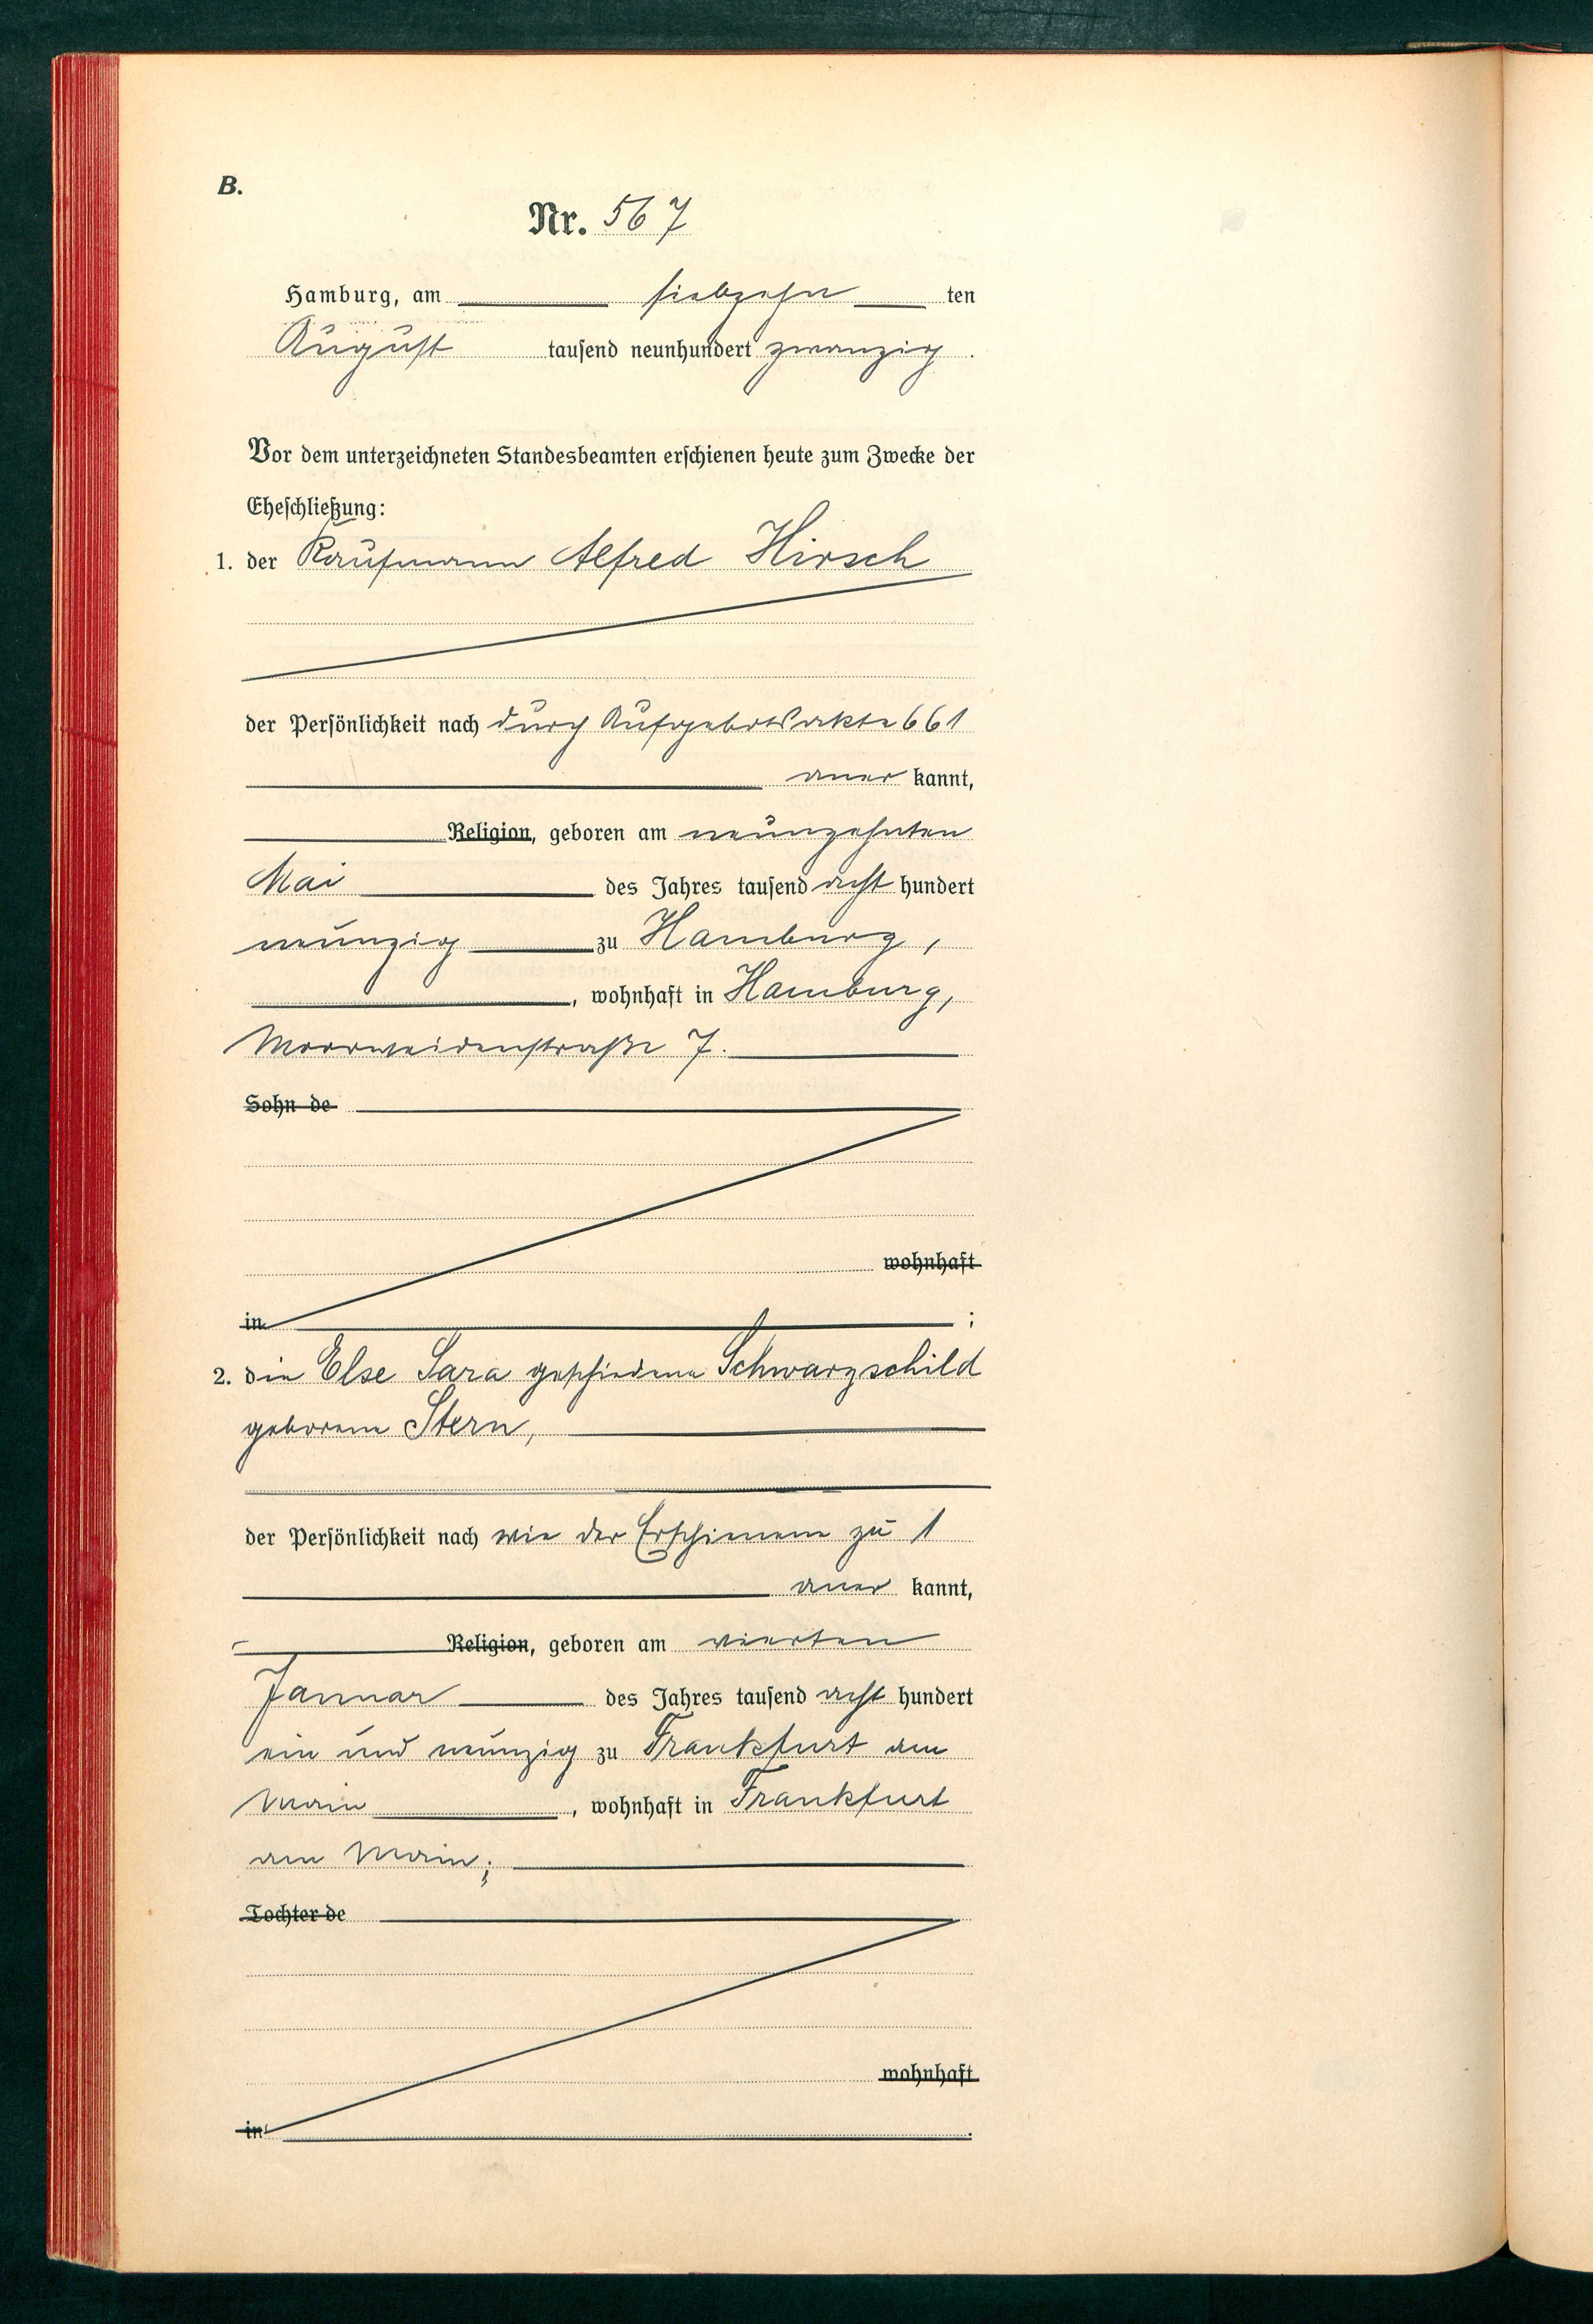 B.
Nr. 567
Hamburg, am siebzehn ten
August tausend neunhundert zwanzig.
Vor dem unterzeichneten Standesbeamten erschienen heute zum Zwecke der
Eheschließung:
1. der Kaufmann Alfred Hirsch
der Persönlichkeit nach durch Aufgebotsakte 661
aner kannt,
Religion, geboren am neunzehnten
Mai des Jahres tausend acht hundert
neunzig zu Hamburg,
, wohnhaft in Hamburg,
Moorweidenstraße 7.
Sohn de
wohnhaft
in ;
2. die Else Sara geschiedene Schwarzschild
geborene Stern,
der Persönlichkeit nach wie der Erschienene zu 1
aner kannt,
Religion, geboren am vierten
Januar des Jahres tausend acht hundert
ein und neunzig zu Frankfurt am
Main , wohnhaft in Frankfurt
am Main;
Tochter de
wohnhaft
in .